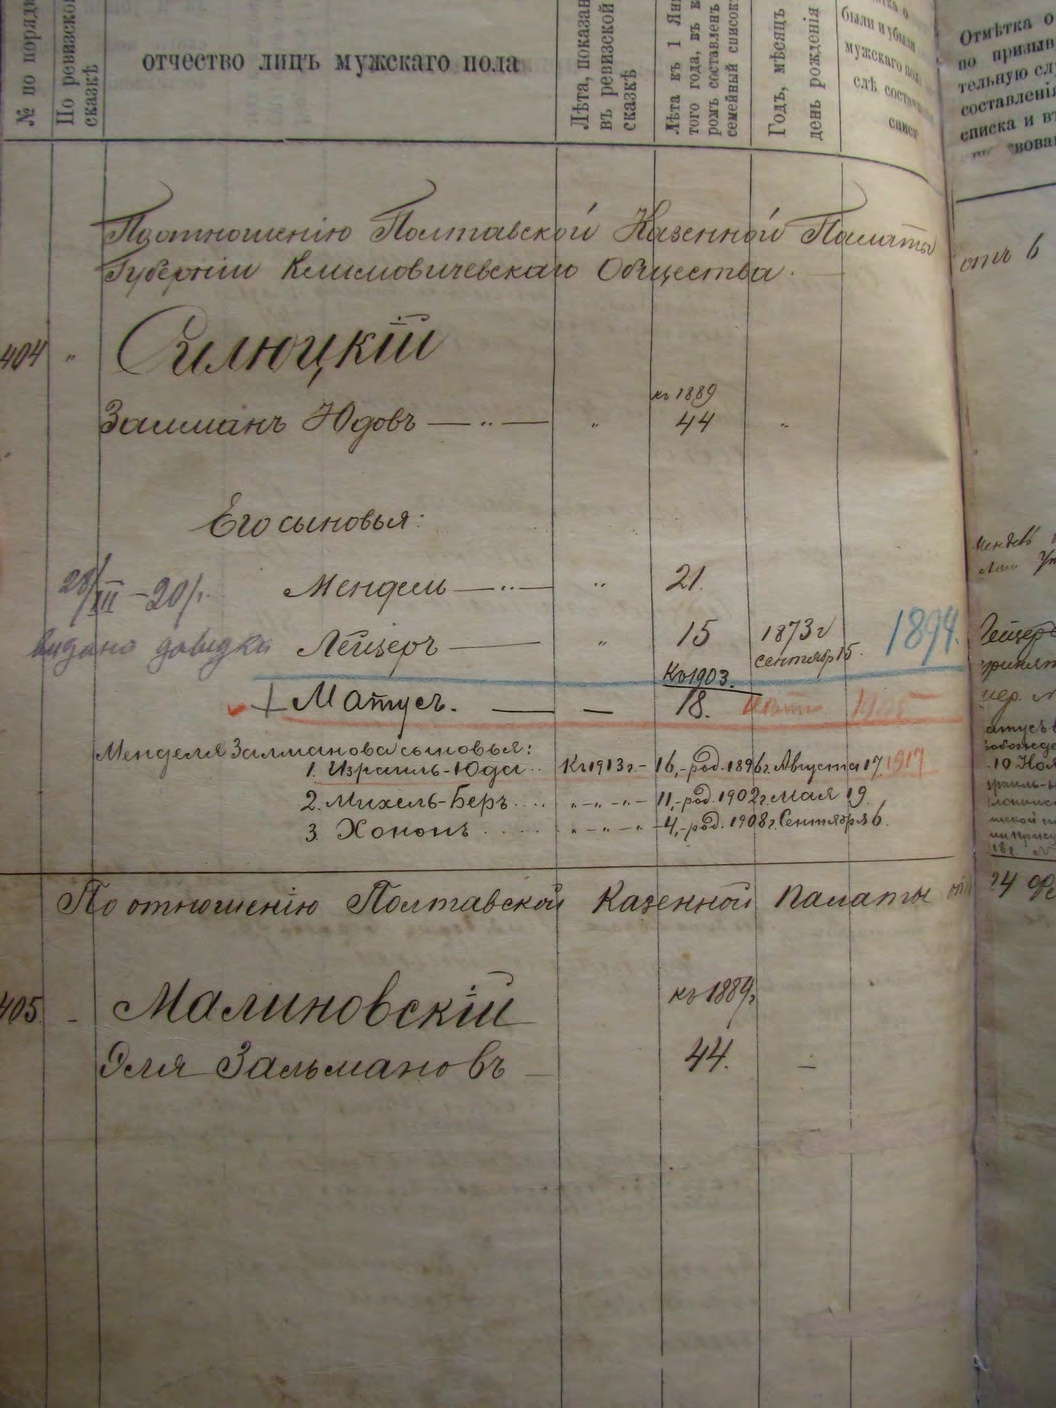 № по порядк
По ревизско
сказкѣ
отчество лицъ мужскаго пола
Лѣта, показан
въ ревизской
сказкѣ
Лѣта къ 1 Янв
того года, въ к
ромъ составленъ
семейный список
Годъ, мѣсяцъ
день рожденія
были и убыли
мужскаго пол
слѣ состав
списк
Отмѣтка о
по призыв
тельную сл
составлені
списка и въ
По отношенію Полтавской Казенной Палаты
отъ 6
Губерніи Климовичевскаго Общества.
404 " Силюцкій
къ 1889
Залманъ Юдовъ — " — " 44 "
Его сыновья:
28/III – 20 г.
Мендель — " — " 21.
видано довидки
Лейзеръ — " 15 1873 г сентябр 15. 1894.
Къ 1903.
+ Матусъ. — — 18. 1905
Менделя Залманова сыновья:
1. Израиль-Юда .. Къ 1913 г. – 16, – род. 1896 г. Августа 17 1917
2. Михель-Беръ .... " – " – " – 11, – род. 1902 г. мая 19.
3 Хононъ ..... " – " – " – 4, – род. 1908 г. Сентября 6.
По отношенію Полтавской Казенной Палаты
24 Фе
405. – Малиновскій къ 1889 г.
Эля Зальмановъ — 44. –